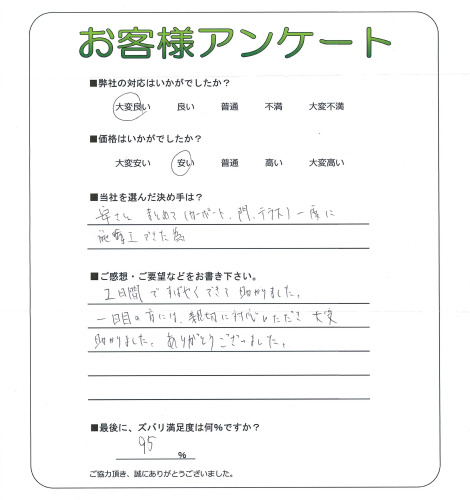 お客様アンケート
■弊社の対応はいかがでしたか？
大変良い 良い 普通 不満 大変不満
■価格はいかがでしたか？
大変安い 安い 普通 高い 大変高い
■当社を選んだ決め手は？
安さと まとめて(カーポート、門、テラス)一度に
施工できた為
■ご感想・ご要望などをお書き下さい。
2日間ですばやくできて助かりました。
一日目の方には、親切に対応いただき 大変
助かりました。ありがとうございました。
■最後に、ズバリ満足度は何%ですか？
95 %
ご協力頂き、誠にありがとうございました。